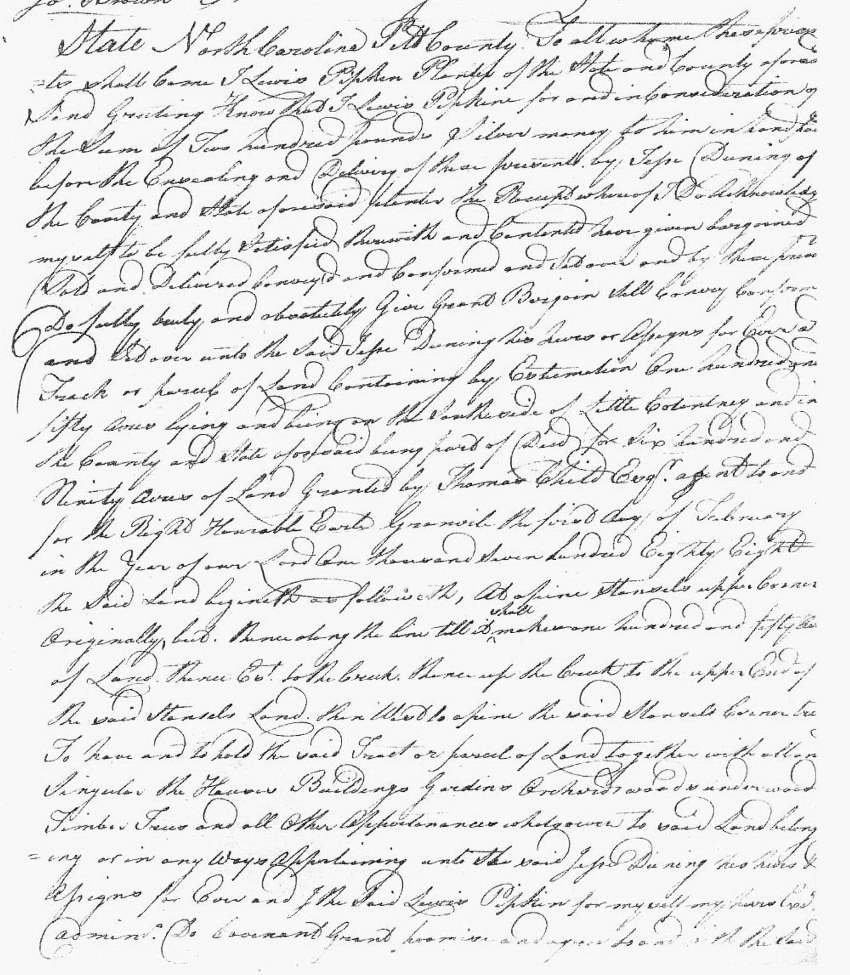 Jo. Brown
State North Carolina Pitt County. To all whome these presen
=ts shall Come I Lewis Pipkin Planter of the State and County afores
Send Greeting Know that I Lewis Pipkine for and in Consideration of
the Sum of Two hundred pounds Silver money to him in hand
before the Ensealing and Delivery of these presents by Jesse Duning of
the County and State aforesaid planter the Receipt where of I Do Acknowledg
my self to be fully Satisfied therewith and Contented have given bargained
Sold and Delivered Convey'd and Confirmed and Set over and by these presen
Do fully truly and absolutely Give Grant Bargain Sell Convey Confirm
and Set over unto the Said Jesse Duning his heires or Assigns for Ever a
Track or parcel of Land Containing by Estemation One hundred and
fifty acres lying and being on the South side of Little Cotentney and in
the County and State aforesaid being part of Deed for Six hundred and
Ninity acres of Land Granted by Thomas Child Esqr. agent to and
for the Right Hourable Earle Granvile the first day of February
in the Year of our Lord One thousand Seven hundred Eighty Eight
the Said Land begineth as followeth, At a pine Stansels upper Corner
Originally, but. thence along the line till it shall makes one hundred and fifty
of Land. thence Et. to the Creek. thence up the Creek to the upper End of
the said Stansels Land. then West to a pine the said Stansels Corner tre
To have and to hold the said Tract or parcel of Land together with all an
Singular the Houses Buildings Gardins Orchards woods under wood
Timber Trees and all Other Appurtanances whatsoever to said Land belong
=ing or in any Ways Appertaining unto the said Jesse Duning his heirs &
Assigns for Ever and I the Said Lewis Pipkin for my self my heirs Exr.
admin.s Do Covenant Grant promise and agree to and with the Said